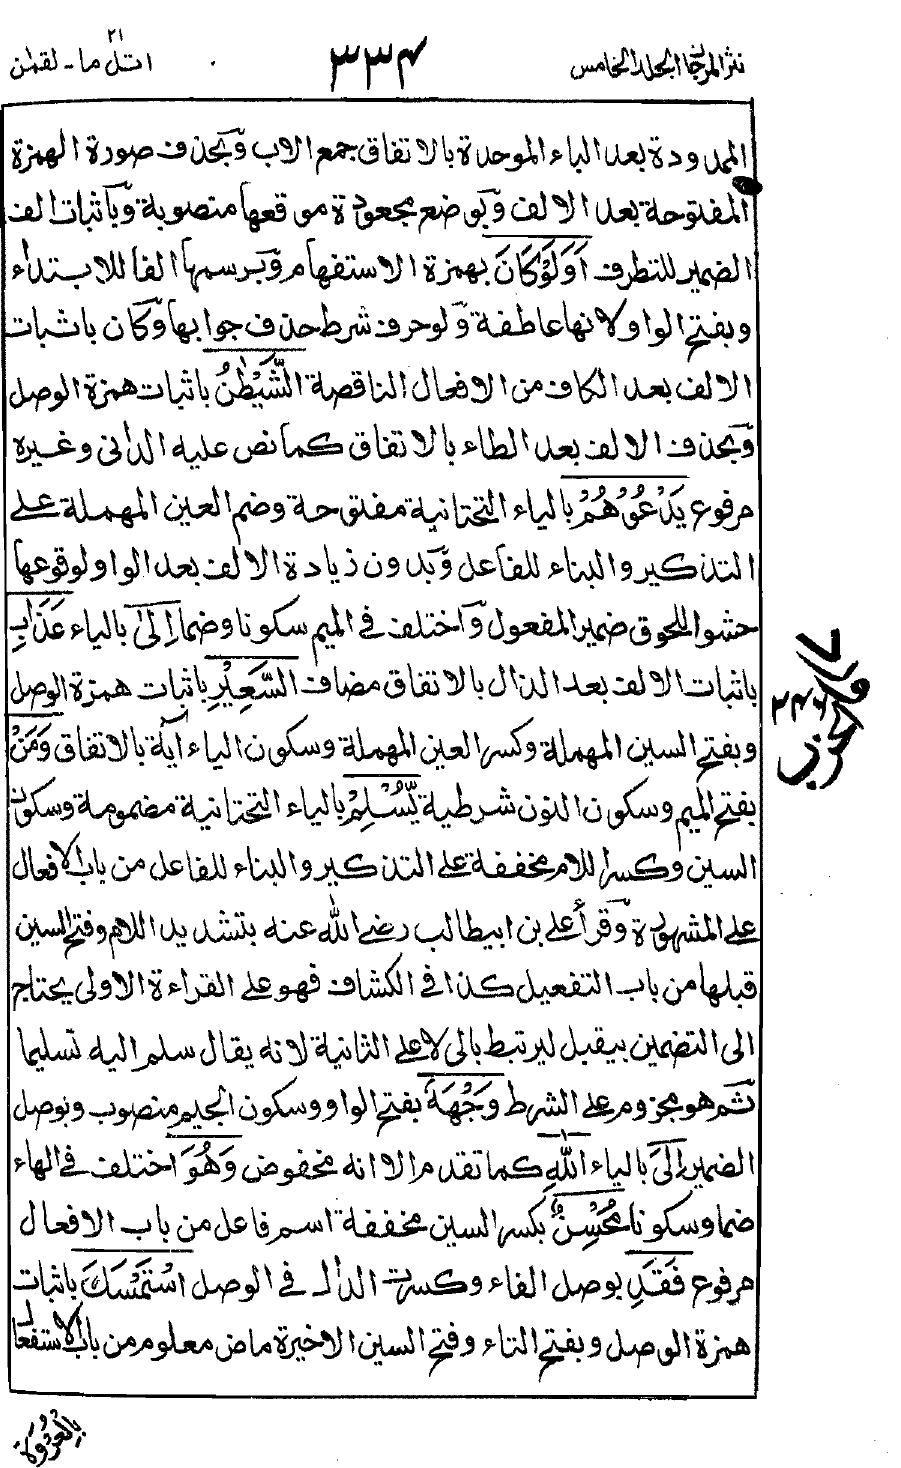 نثر المرجان المجلد الخامس
٣٣٤
اتل ما - لقمٰن
٢١
الممدودة بعد الباء الموحدة بالاتفاق جمع الاب وبحذف صورة الهمزة
المفتوحة بعد الالف وبوضع مجعودة موقعها منصوبة وباثبات الف
الضمير للتطرف اَوَلَوْ كَانَ بهمزة الاستفهام وبرسمها الفا للابتداء
وبفتح الواو لانها عاطفة ولو حرف شرط حذف جوابها وكان باثبات
الالف بعد الكاف من الافعال الناقصة الشَّيْطٰنُ باثبات همزة الوصل
وبحذف الالف بعد الطاء بالاتفاق كما نص عليه الدانى وغيره
مرفوع يَدْعُوْهُمْ بالياء التحتانية مفتوحة وضم العين المهملة على
التذكير والبناء للفاعل وبدون زيادة الالف بعد الواو لوقوعها
حشوا للحوق ضمير المفعول واختلف فى الميم سكونا وضما اِلٰى بالياء عَذَابِ
باثبات الالف بعد الذال بالاتفاق مضاف السَّعِيْرِ باثبات همزة الوصل
وبفتح السين المهملة وكسر العين المهملة وسكون الياء آية بالاتفاق وَمَنْ
بفتح الميم وسكون النون شرطية يُّسْلِمْ بالياء التحتانية مضمومة وسكون
السين وكسر اللام مخففة على التذكير والبناء للفاعل من باب الافعال
على المشهورة وقرأ على بن ابيطالب رضى الله عنه بتشديد اللام وفتح السين
قبلها من باب التفعيل كذا فى الكشاف فهو على القراءة الاولى يحتاج
الى التضمين بيقبل ليرتبط بالى لا على الثانية لانه يقال سلم اليه تسليما
ثم هو مجزوم على الشرط وَجْهَهٗ بفتح الواو وسكون الجيم منصوب وبوصل
الضمير اِلَى بالياء اللّٰهِ كما تقدم الا انه مخفوض وَهُوَ اختلف فى الهاء
ضما وسكونا مُحْسِنٌ بكسر السين مخففة اسم فاعل من باب الافعال
مرفوع فَقَدِ بوصل الفاء وكسرت الدال فى الوصل اسْتَمْسَكَ باثبات
همزة الوصل وبفتح التاء وفتح السين الاخيرة ماض معلوم من باب الاستفعال
بِالْعُرْوَةِ